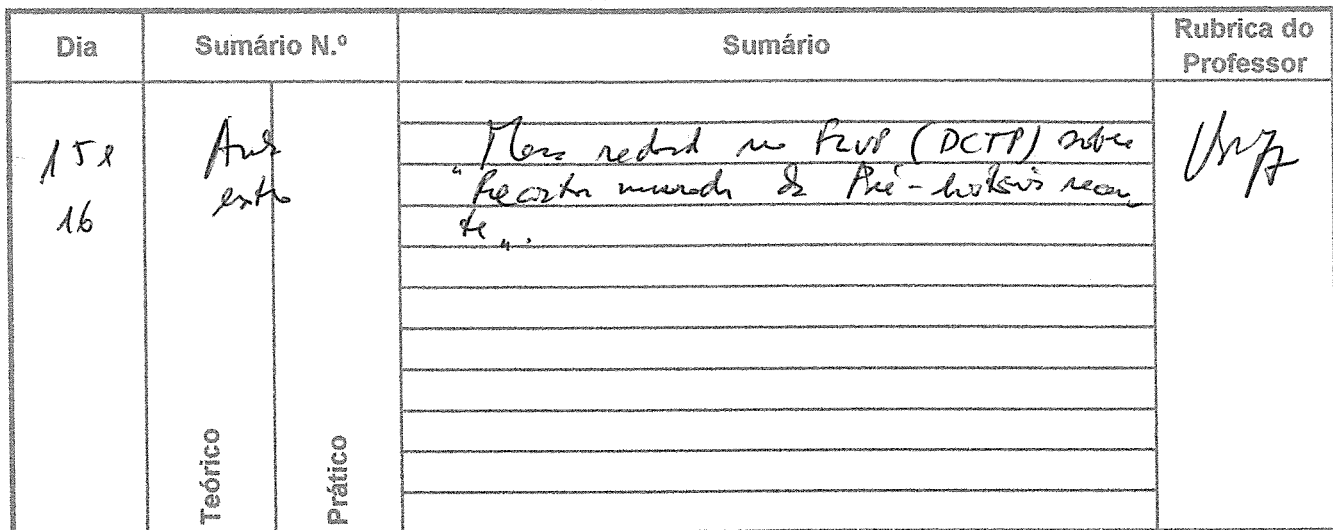 Dia
Sumário N.º
Sumário
Rubrica do
Professor
15 e
16
Aula
extra
"Mesa redonda na FLUP (DCTP) sobre
Recintos murados da Pré-história recen
te".
Teórico
Prático